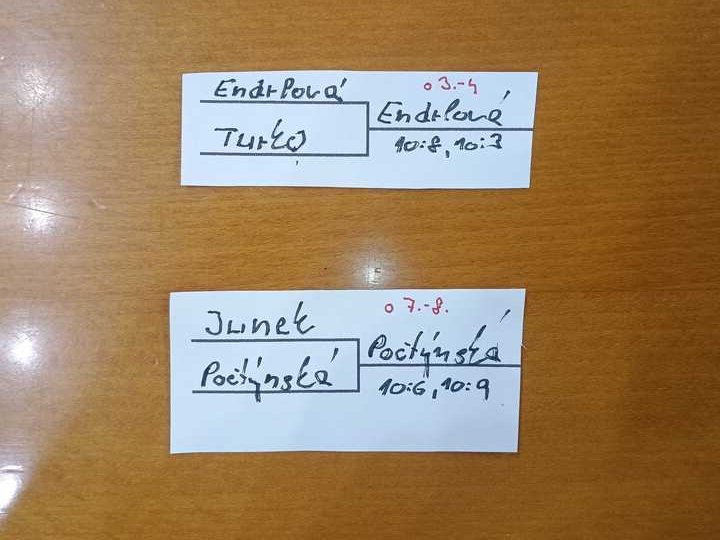 o 3.-4
Endrlová
Endrlová
Turko
10:8, 10:3
o 7.-8.
Junek
Počtýnská
Počtýnská
10:6, 10:9